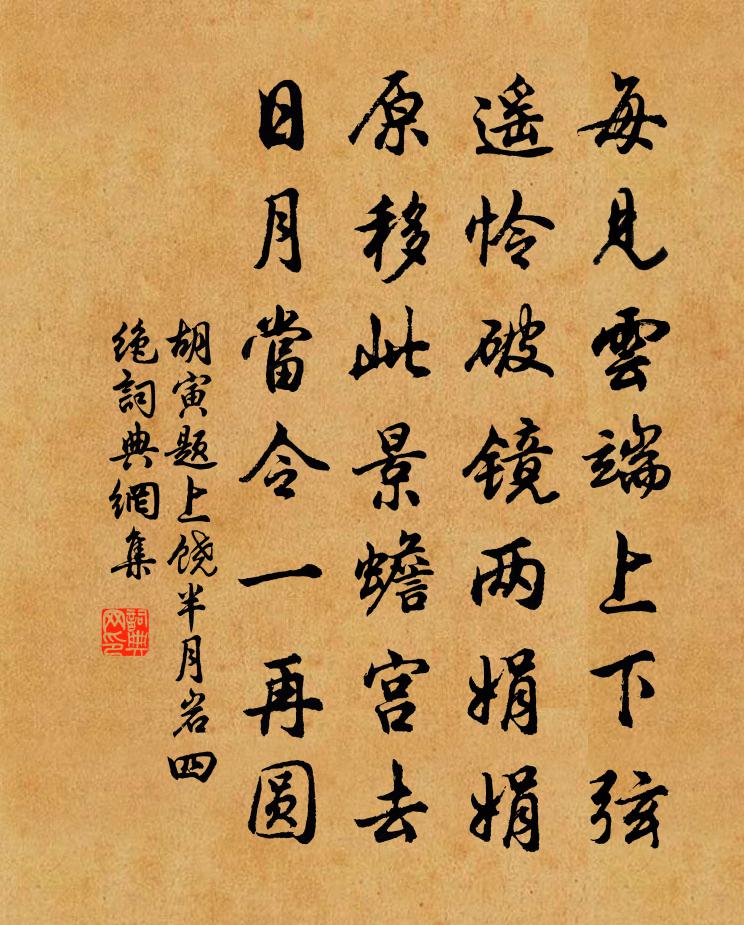 每見雲端上下弦
遥怜破镜两娟娟
原移此景蟾宫去
日月當令一再圆
胡寅题上饶半月岩四
绝詞典網集
詞典
网印